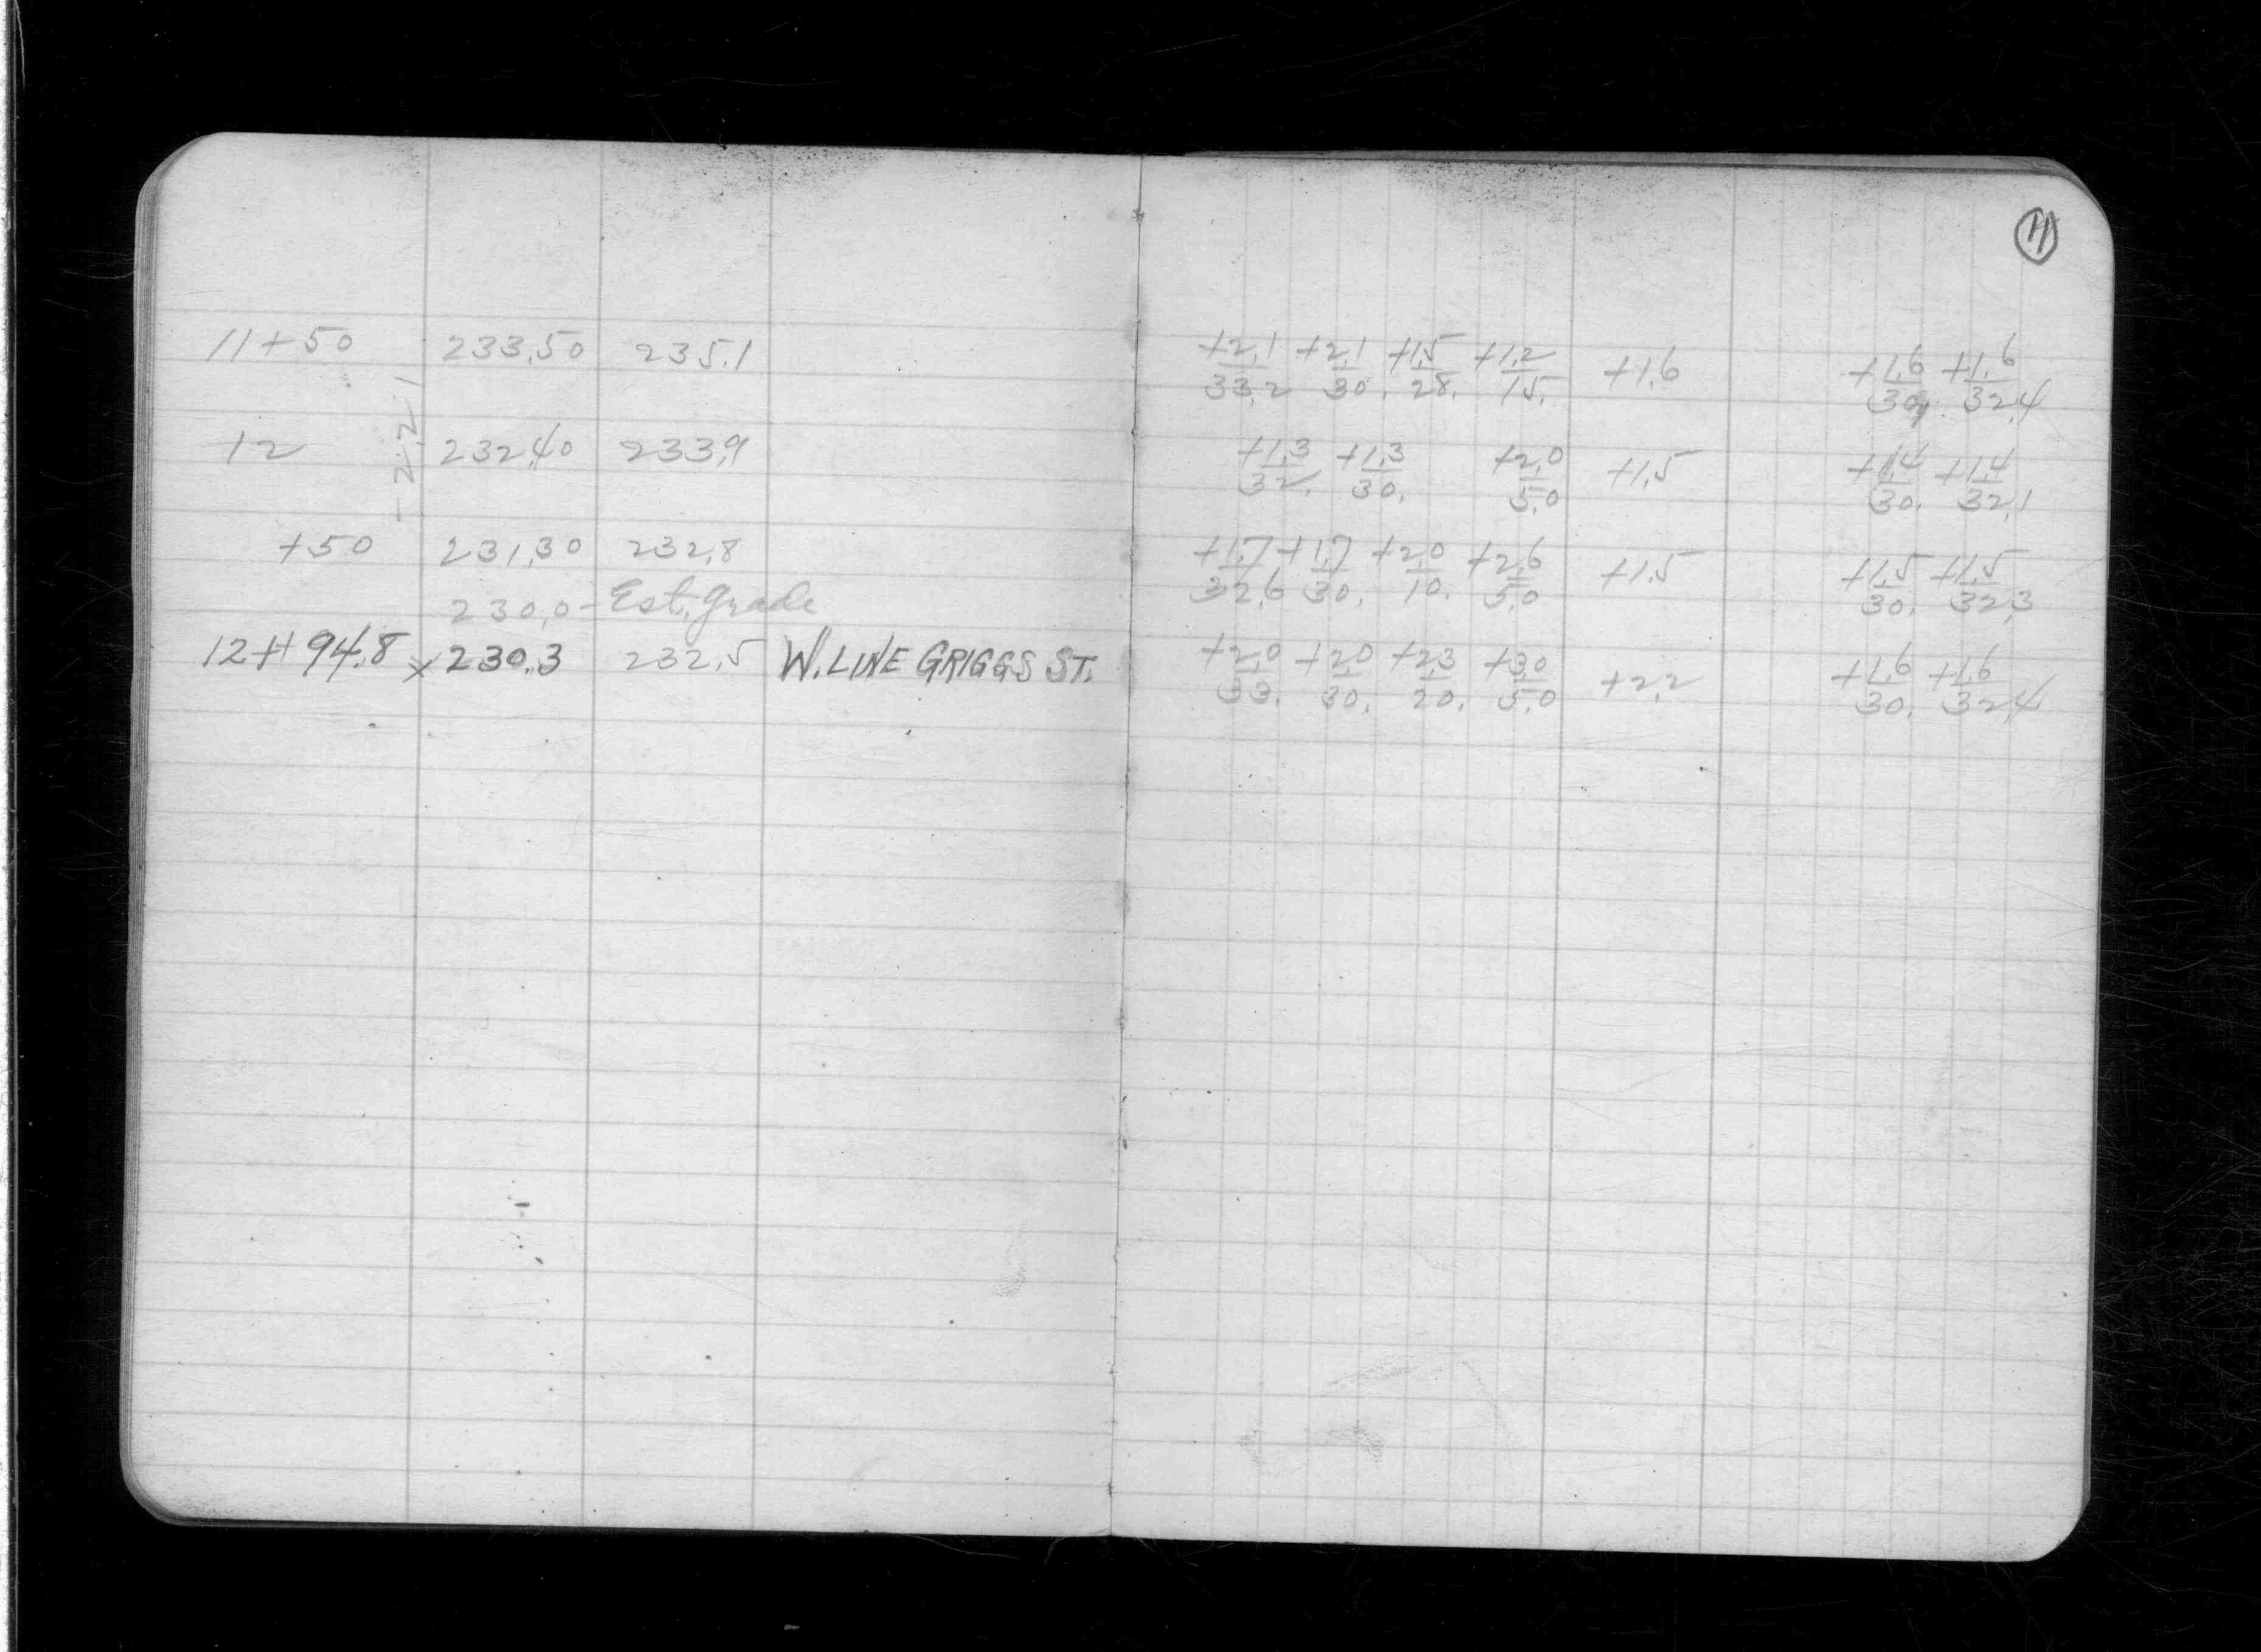 11
11+50 233.50 235.1 +2.1/33.2 +2.1/30. +1.5/28. +1.2/15. +1.6 +1.6/30. +1.6/32.4
-2.21
12 232.40 233.9 +1.3/32. +1.3/30. +2.0/5.0 +1.5 +1.4/30. +1.4/32.1
+50 231.30 232.8 +1.7/32.6 +1.7/30. +2.0/10. +2.6/5.0 +1.5 +1.5/30. +1.5/32.3
230.0 - Est. Grade
12+94.8 x 230.3 232.5 W. LINE GRIGGS ST. +2.0/33. +2.0/30. +2.3/20. +3.0/5.0 +2.2 +1.6/30. +1.6/32.4